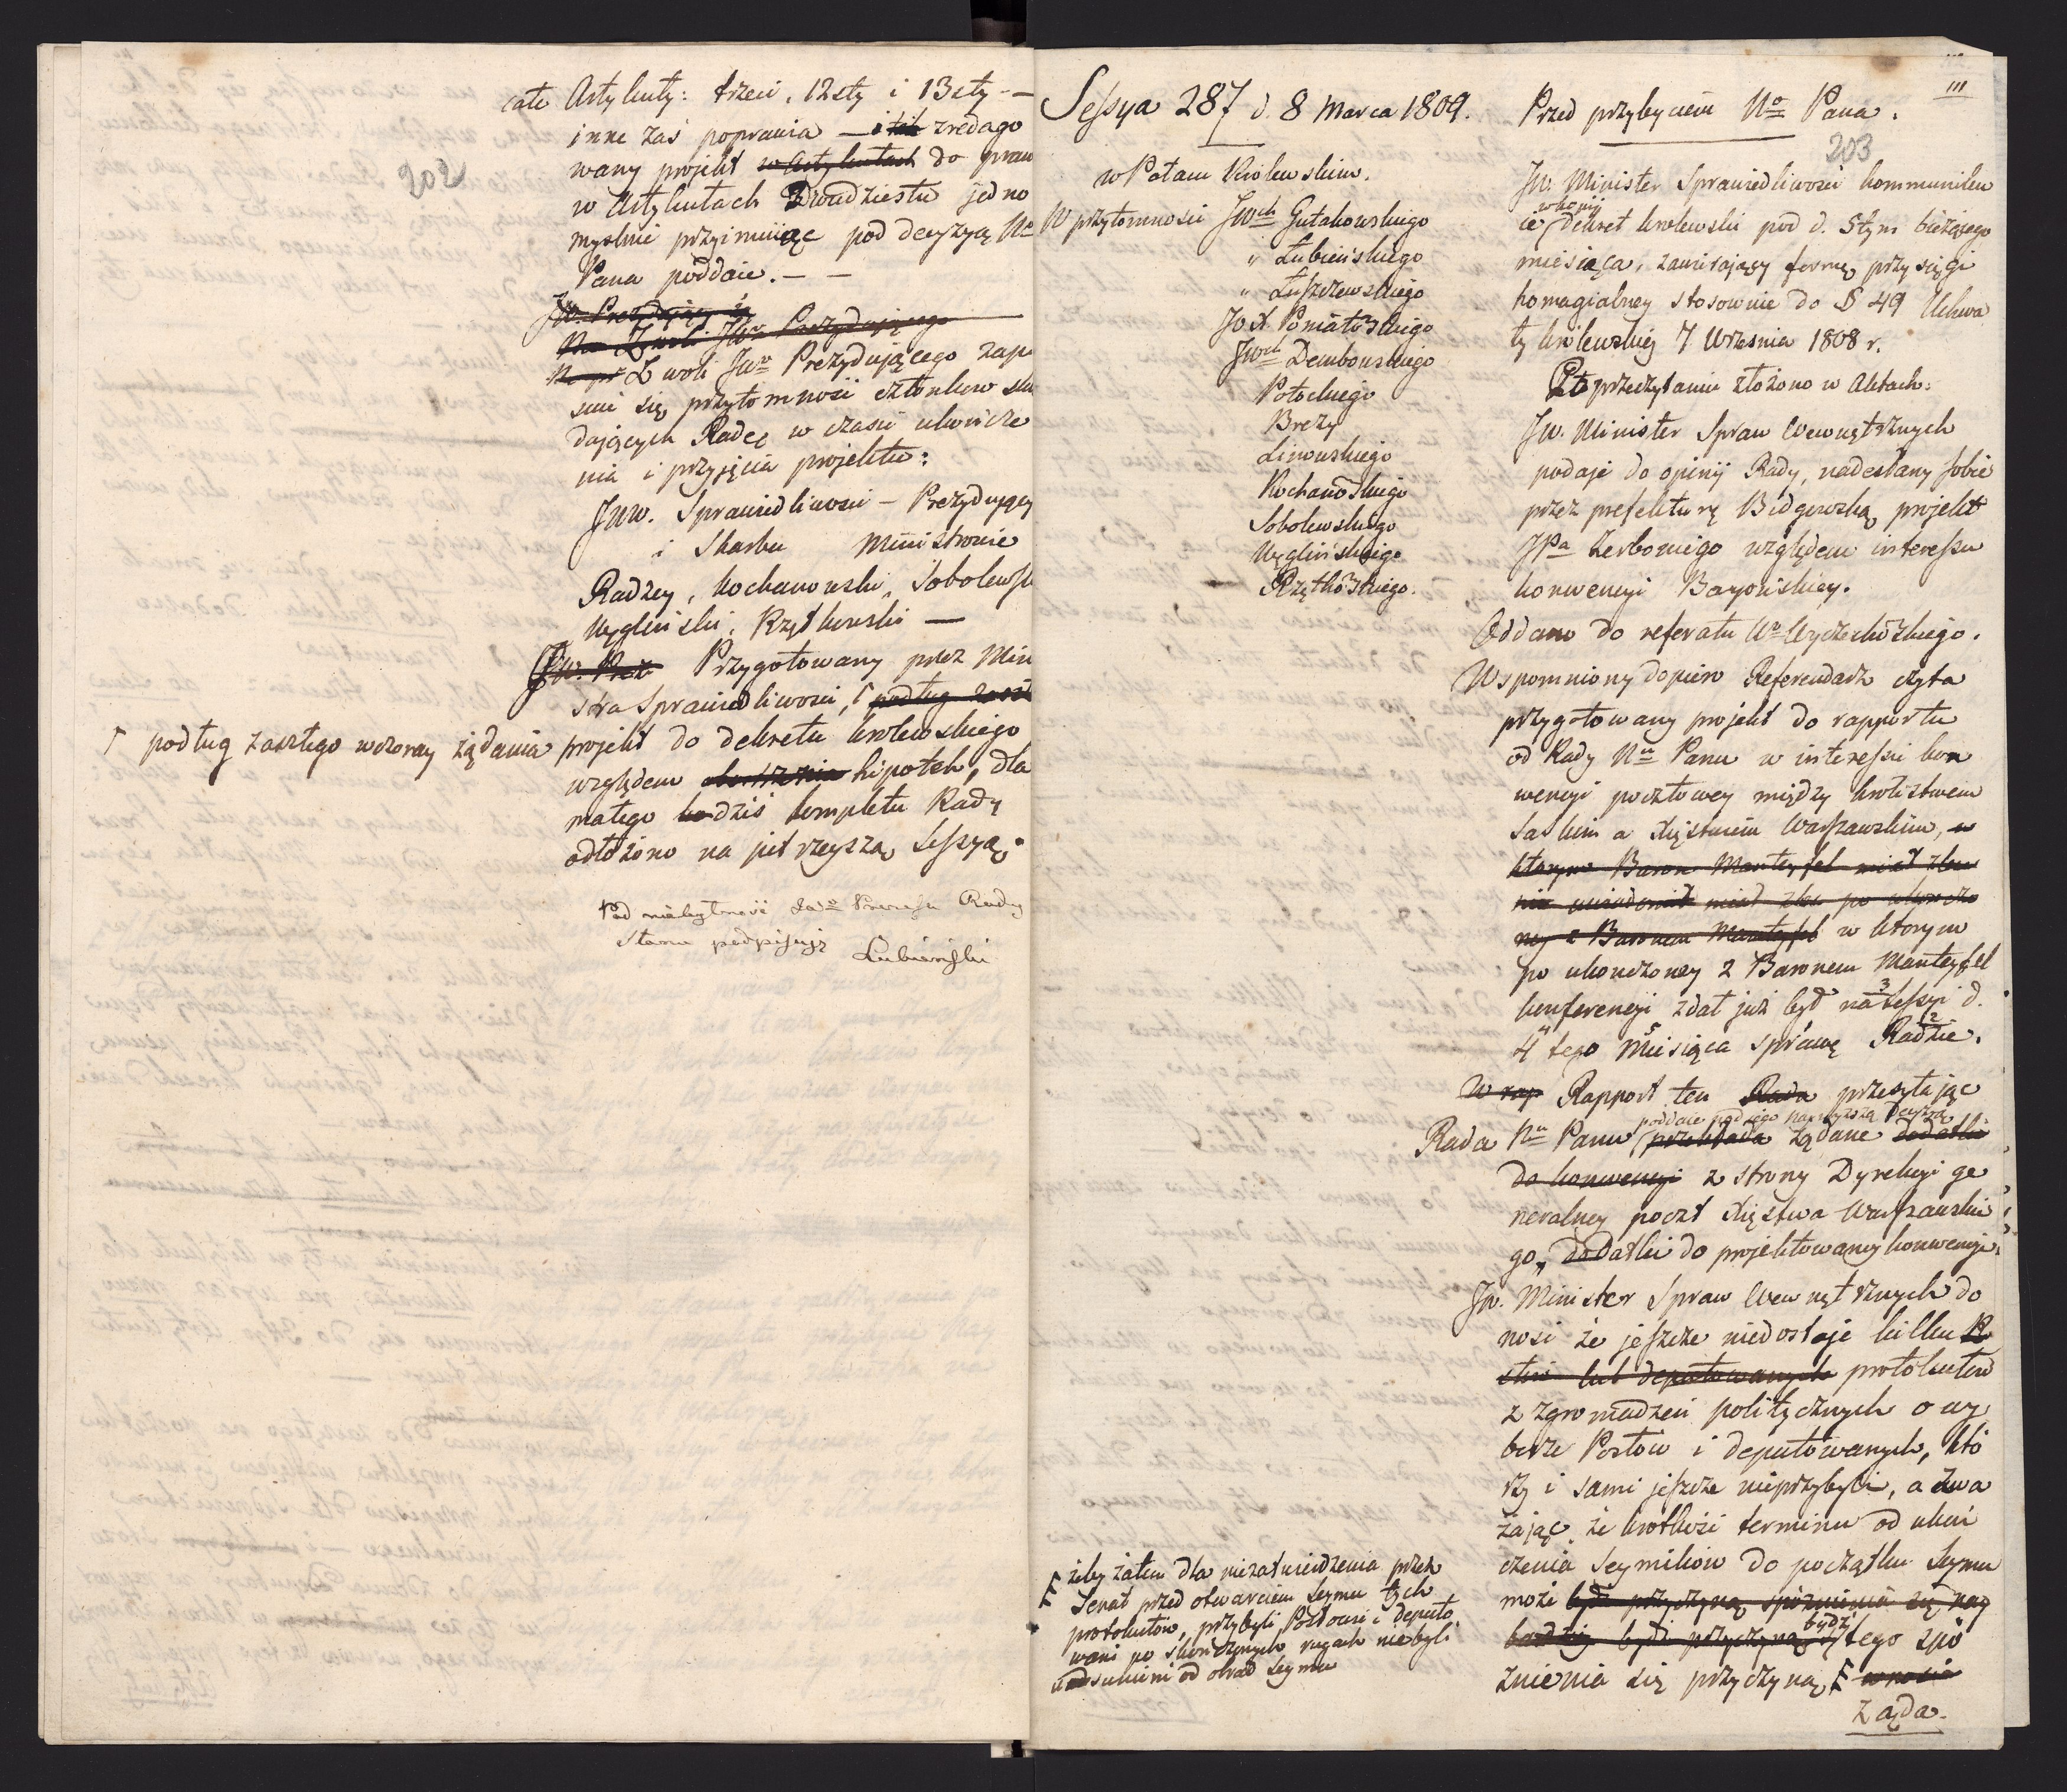 202
cate Artykuły: trzeci, 12sty i 13sty —
inne zaś poprawia — i tak zredago
wany projekt w Artykułach do praw
w Artykułach Dwudziestu jedno
myślnie przyimuiąc pod decyzyą No
Pana poddaie. — —
JW. Prezydujący i
Na Z woli JWo Prezydującego
Na pr Z woli JWo Prezydującego zapi
suie się przytomność członków skła
dających Radę w czasie ukończe
nia i przyjęcia projektu:
JWW. Sprawiedliwości — Prezydujący
i Skarbu Ministrowie
Radzcy, Kochanowski, Sobolewsk
Węgliński, Rzętkowski —
JW. Prez Przygotowany przez Mini
stra Sprawiedliwości, Γ podług zaszł
Γ podług zaszłego wczoray żądania
projekt do dekretu królewskiego
względem hipotek, dla
małego dziś kompletu Rady
odłożono na jutrzeyszą Sessyą.
Pod niebytność JWo Prezesa Rady
Stanu podpisuję
Łubieński
Sessya 287 d. 8 Marca 1809.
w Pałacu Królewskim.
W przytomności JWch Gutakowskiego
" Łubieńskiego
" Łuszczewskiego
JO X. Poniatoskiego
JWch Dembowskiego
Potockiego
Brezy
Linowskiego
Kochanoskiego
Sobolewskiego
Węglińskiego
Rzętkoskiego.
Przed przybyciem No Pana.
111
203
JW. Minister Sprawiedliwości kommuniku
ie w kopij Dekret królewski pod d. 5tym bieżącego
miesiąca, zawierający formę przysięgi
homagialney stosownie do § 49 Uchwa
ły królewskiej 7 Września 1808 r.
Po przeczytaniu złożono w Aktach.
JW. Minister Spraw Wewnętrznych
podaje do opinij Rady, nadesłany sobie
przez prefekturę Bidgowską projekt
JPa Zerboniego względem interessu
konwencyi Bayońskiey.
Oddano do referatu Wo Wyczechoskiego.
Wspomniony dopiero Referendarz czyta
przygotowany projekt do rapportu
od Rady Nu Panu w interessie kon
wencyi pocztowey między królestwem
Saskim a Xięstwem Warszawskim, w
którym Baron Manteyfel miał zlece
nie miał zlec po ukończo
ney z Baronem Manteyfel w którym
po ukończoney z Baronem Manteyfel
konferencyi zdał już był na 3 Sessyi d.
4 tego 5 miesiąca sprawę Radzie 2.
W rap Rapport ten Rada przesyłając
Rada Nu Panu poddaie pod jego naywyższą decyzyą przekłada żądane dodatki
do konwencyi z strony Dyrekcyi ge
neralney poczt Xięstwa Warszawskie
go, dodatki do projektowaney konwencyi.
JW. Minister Spraw Wewnętrznych do
nosi że jeszcze niedostaje kilku Po
słów lub deputowanych protokułów
z zgromadzeń politycznych o wy
borze Posłów i deputowanych, któ
rzy i sami jeszcze nieprzybyli, a zwa
żając, że krótkość terminu od ukoń
czenia Seymików do początku Seymu
może bydź przyczyną spóźnienia się nay
bardziej bydź przyczyną bydź tego spó
źnienia się przyczyną, Ϝ wnosi
żąda.
Ϝ żeby zatem dla niezatwierdzenia przez
Senat przed otwarciem Seymu tych
protokułów, przybyli Posłowie i deputo
wani po skończonych rugach niebyli
odsunieni od obrad Seymu